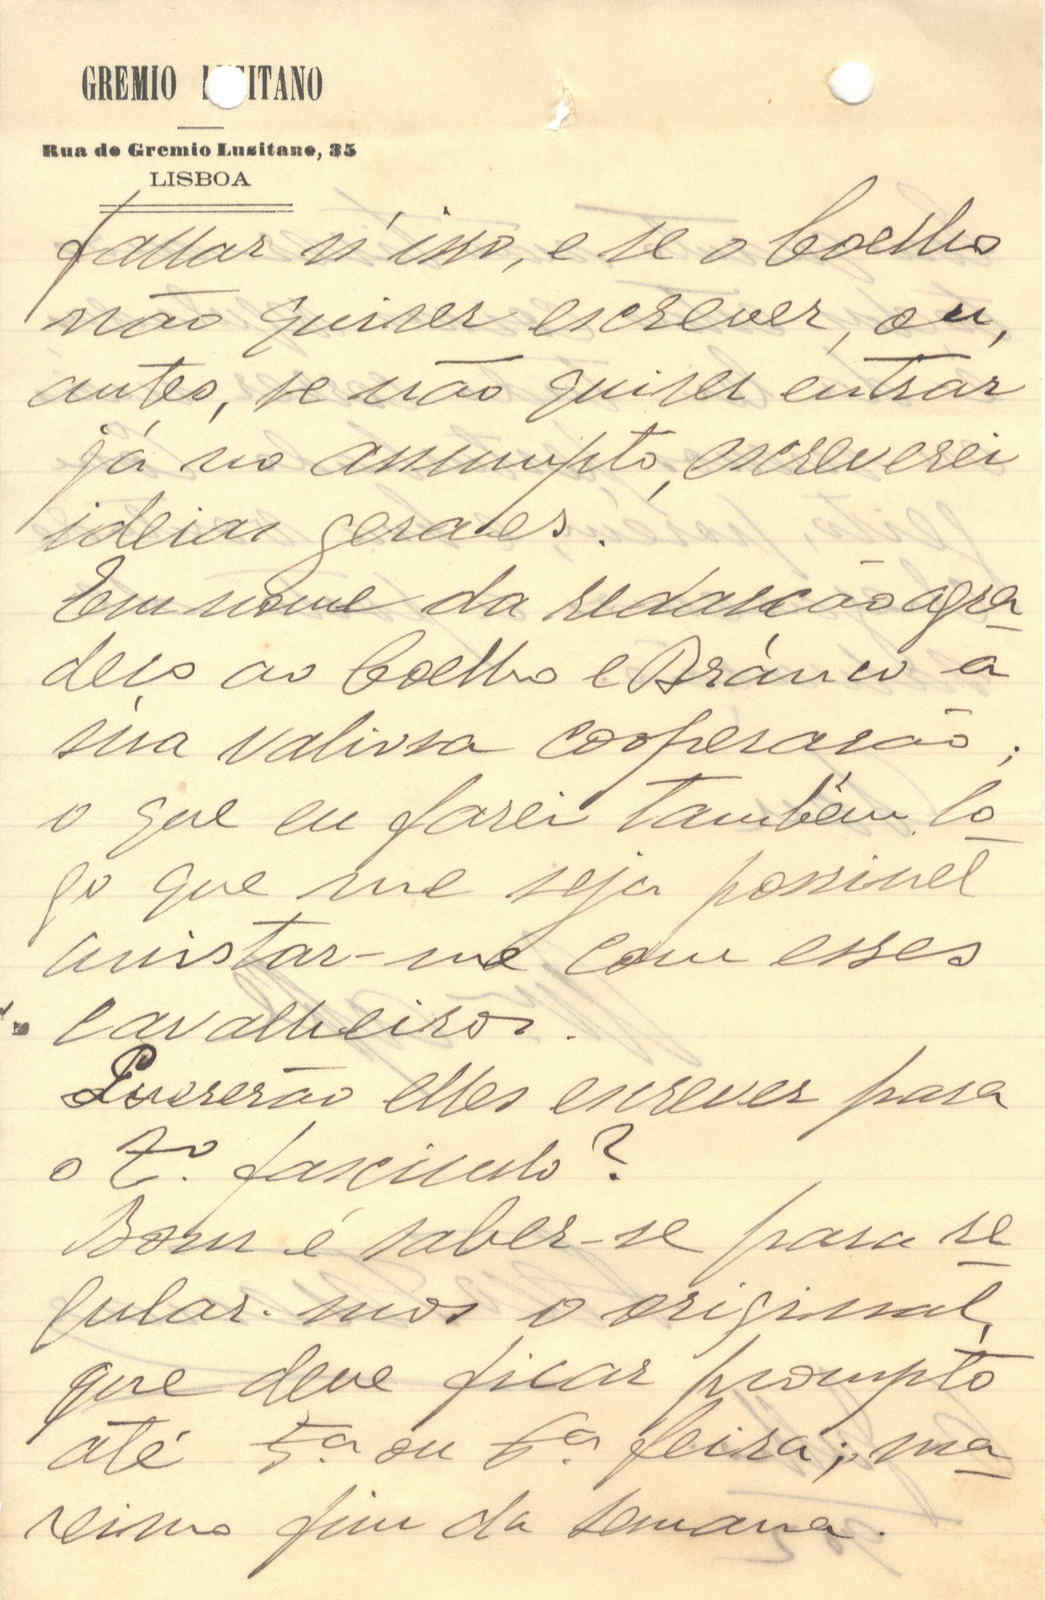 GREMIO LUSITANO
Rua do Gremio Lusitano, 35
LISBOA
fallar n'isso, e se o Coelho
não quiser escrever, ou,
antes, se não quiser entrar
já no assumpto, escreverei
ideias geraes.
Em nome da redacção agra-
deço ao Coelho e Branco a
sua valiosa cooperação;
o que eu farei tambêm lo-
go que me seja possivel
avistar-me com esses
cavalheiros.
Quererão elles escrever para
o 2º. fasciculo?
Bom é saber-se para re-
gular-mos o original,
que deve ficar prompto
até 5ª ou 6ª feira; ma-
ximo fim da semana.